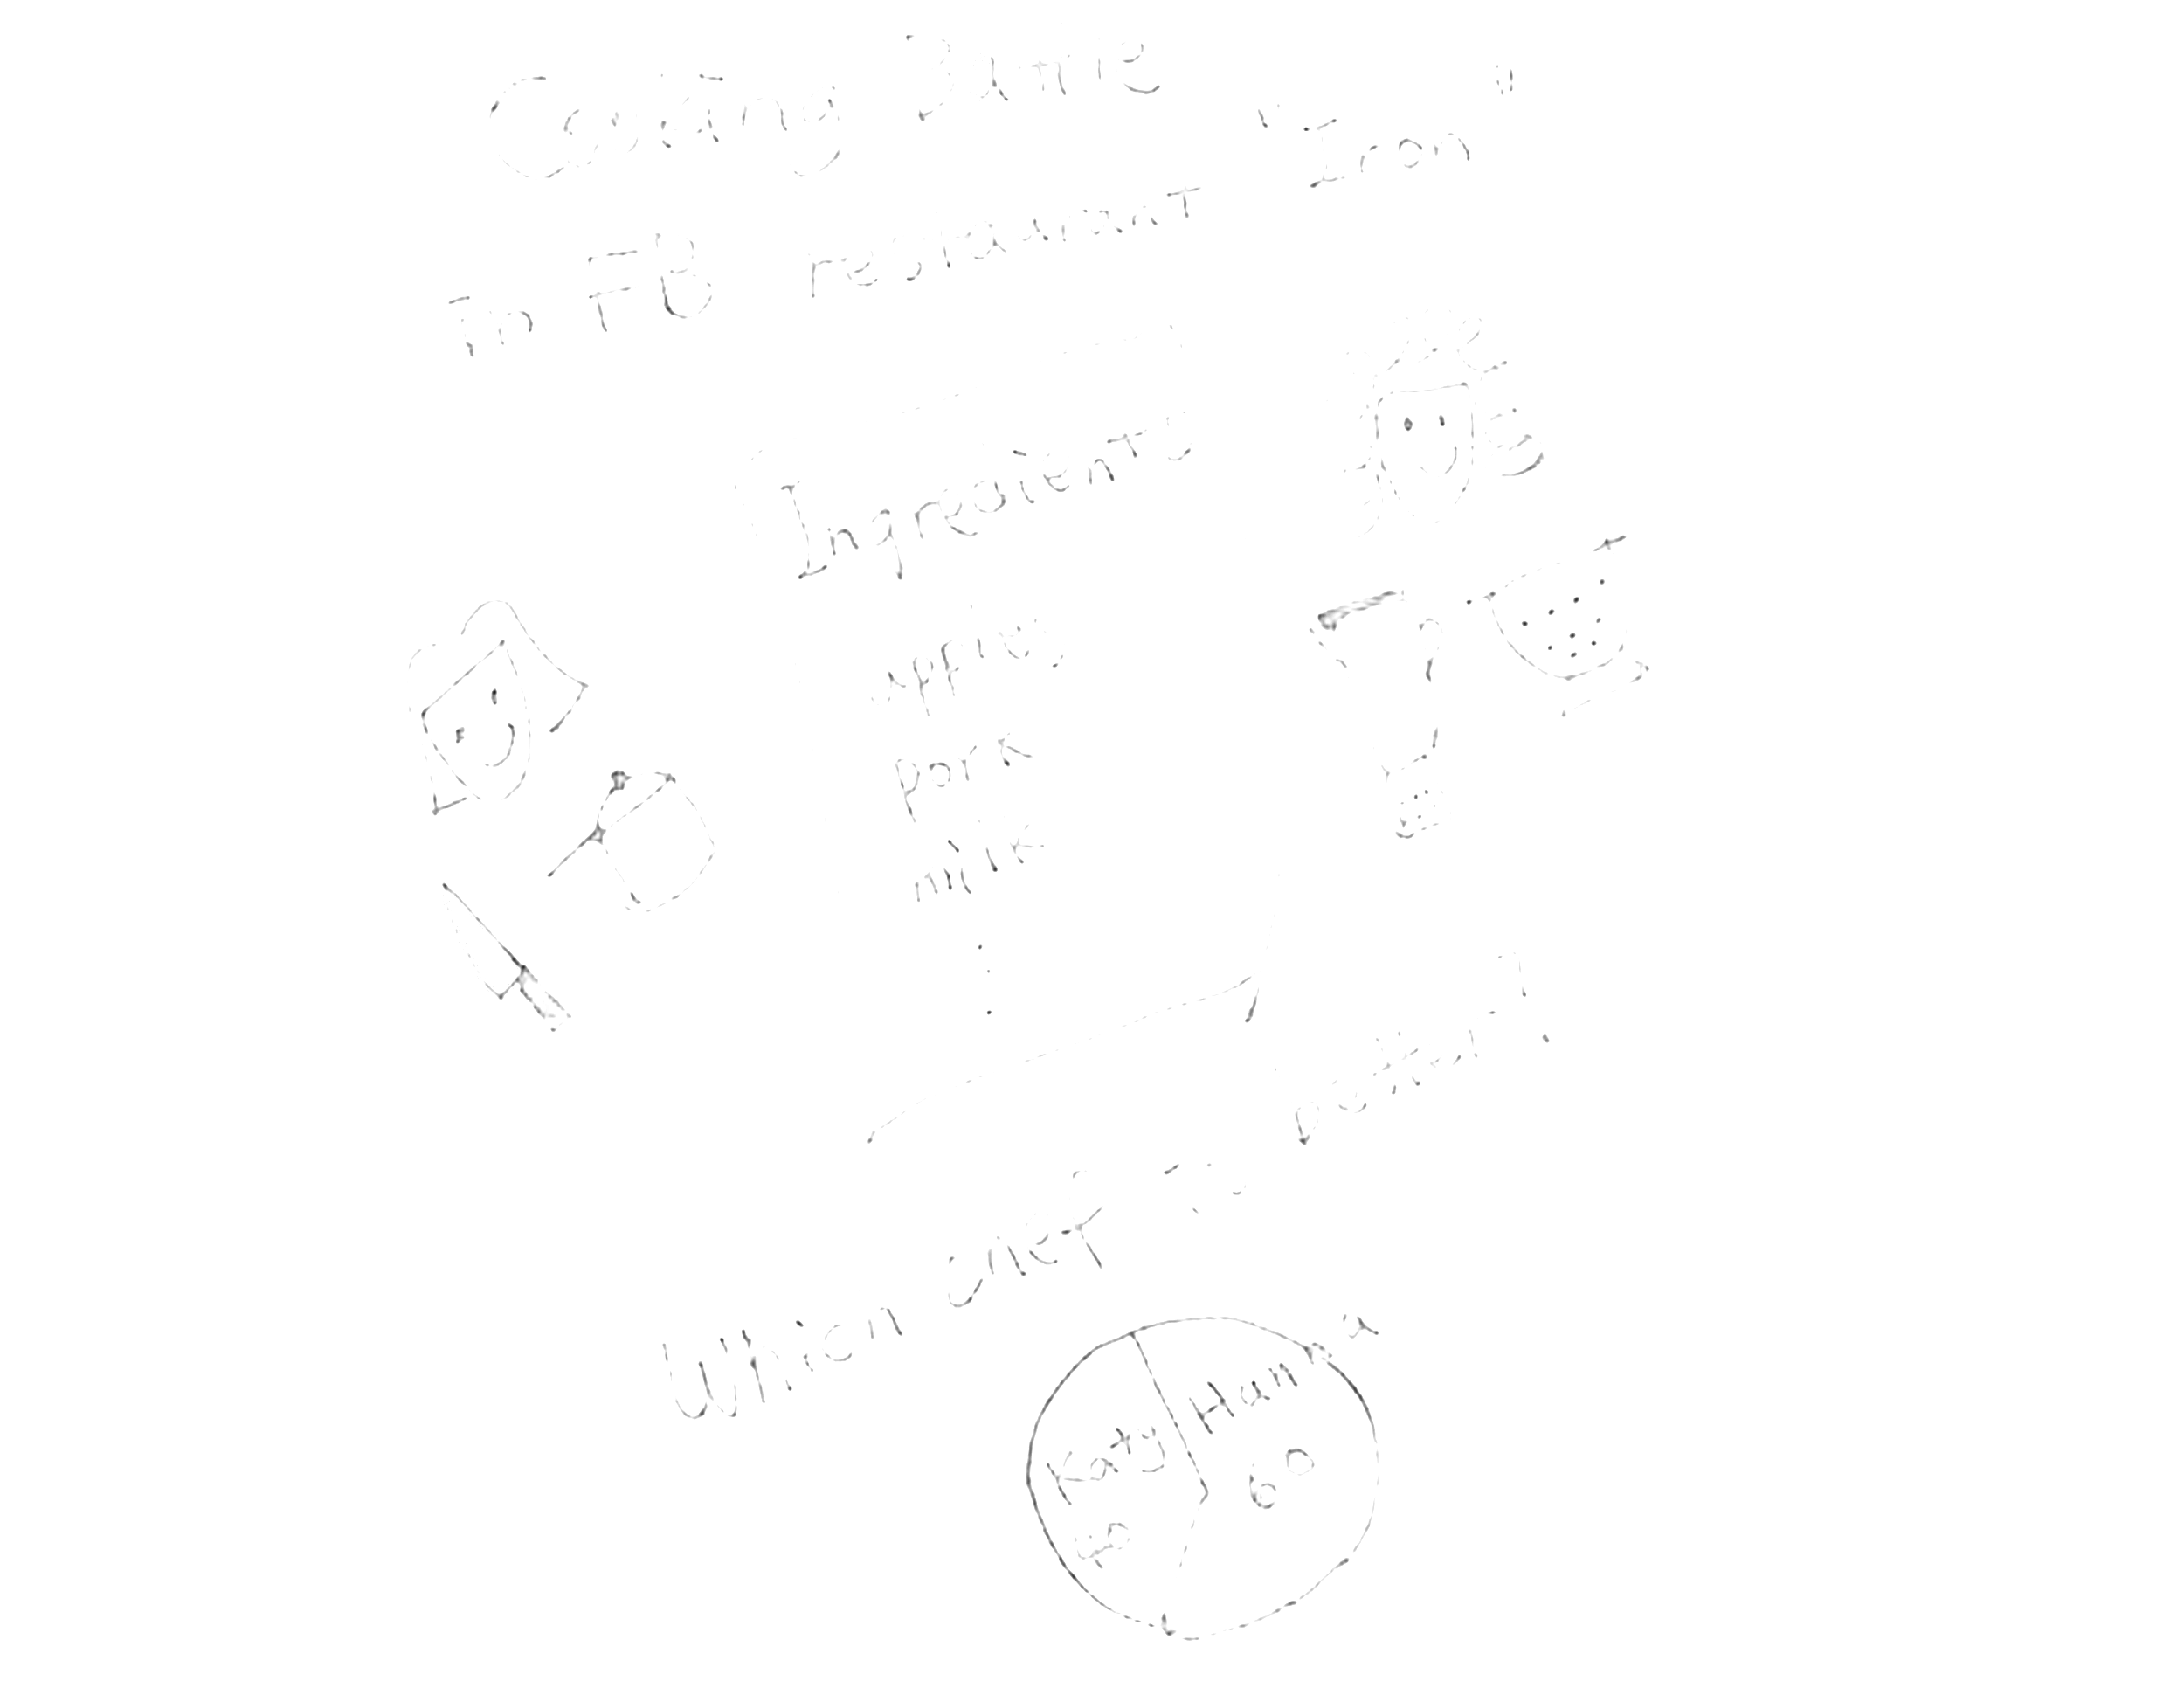 Cooking Battle
In FB restaurant "Iron"
Ingredients
apples
pork
milk
Which chef is better?
Katy Hanna
45 60